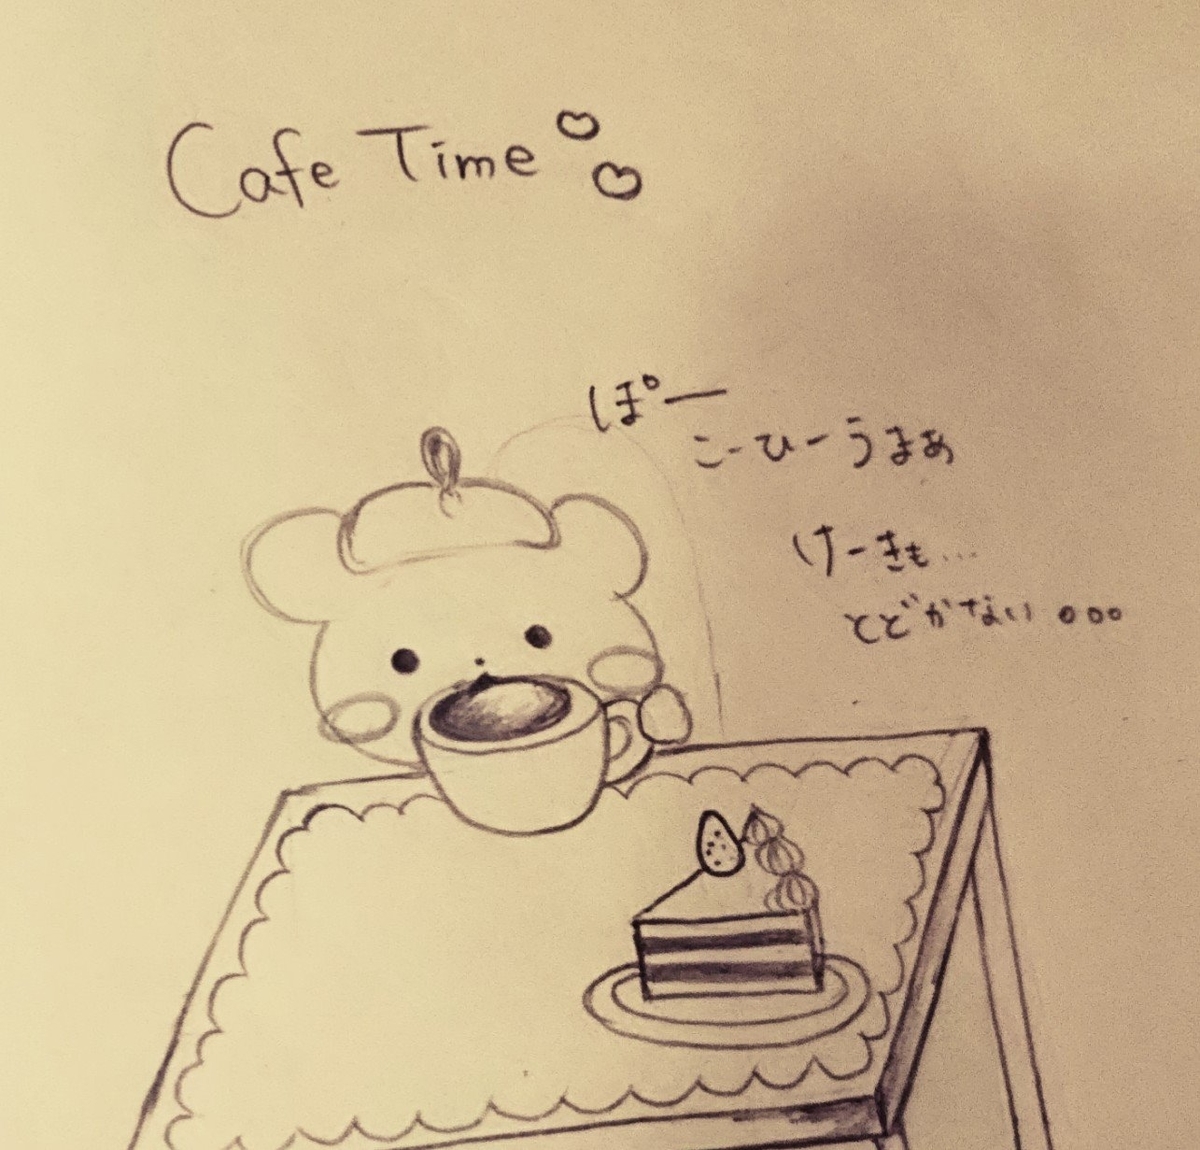 Cafe Time
ぽー
こーひーうまぁ
けーきも...
とどかない。。。